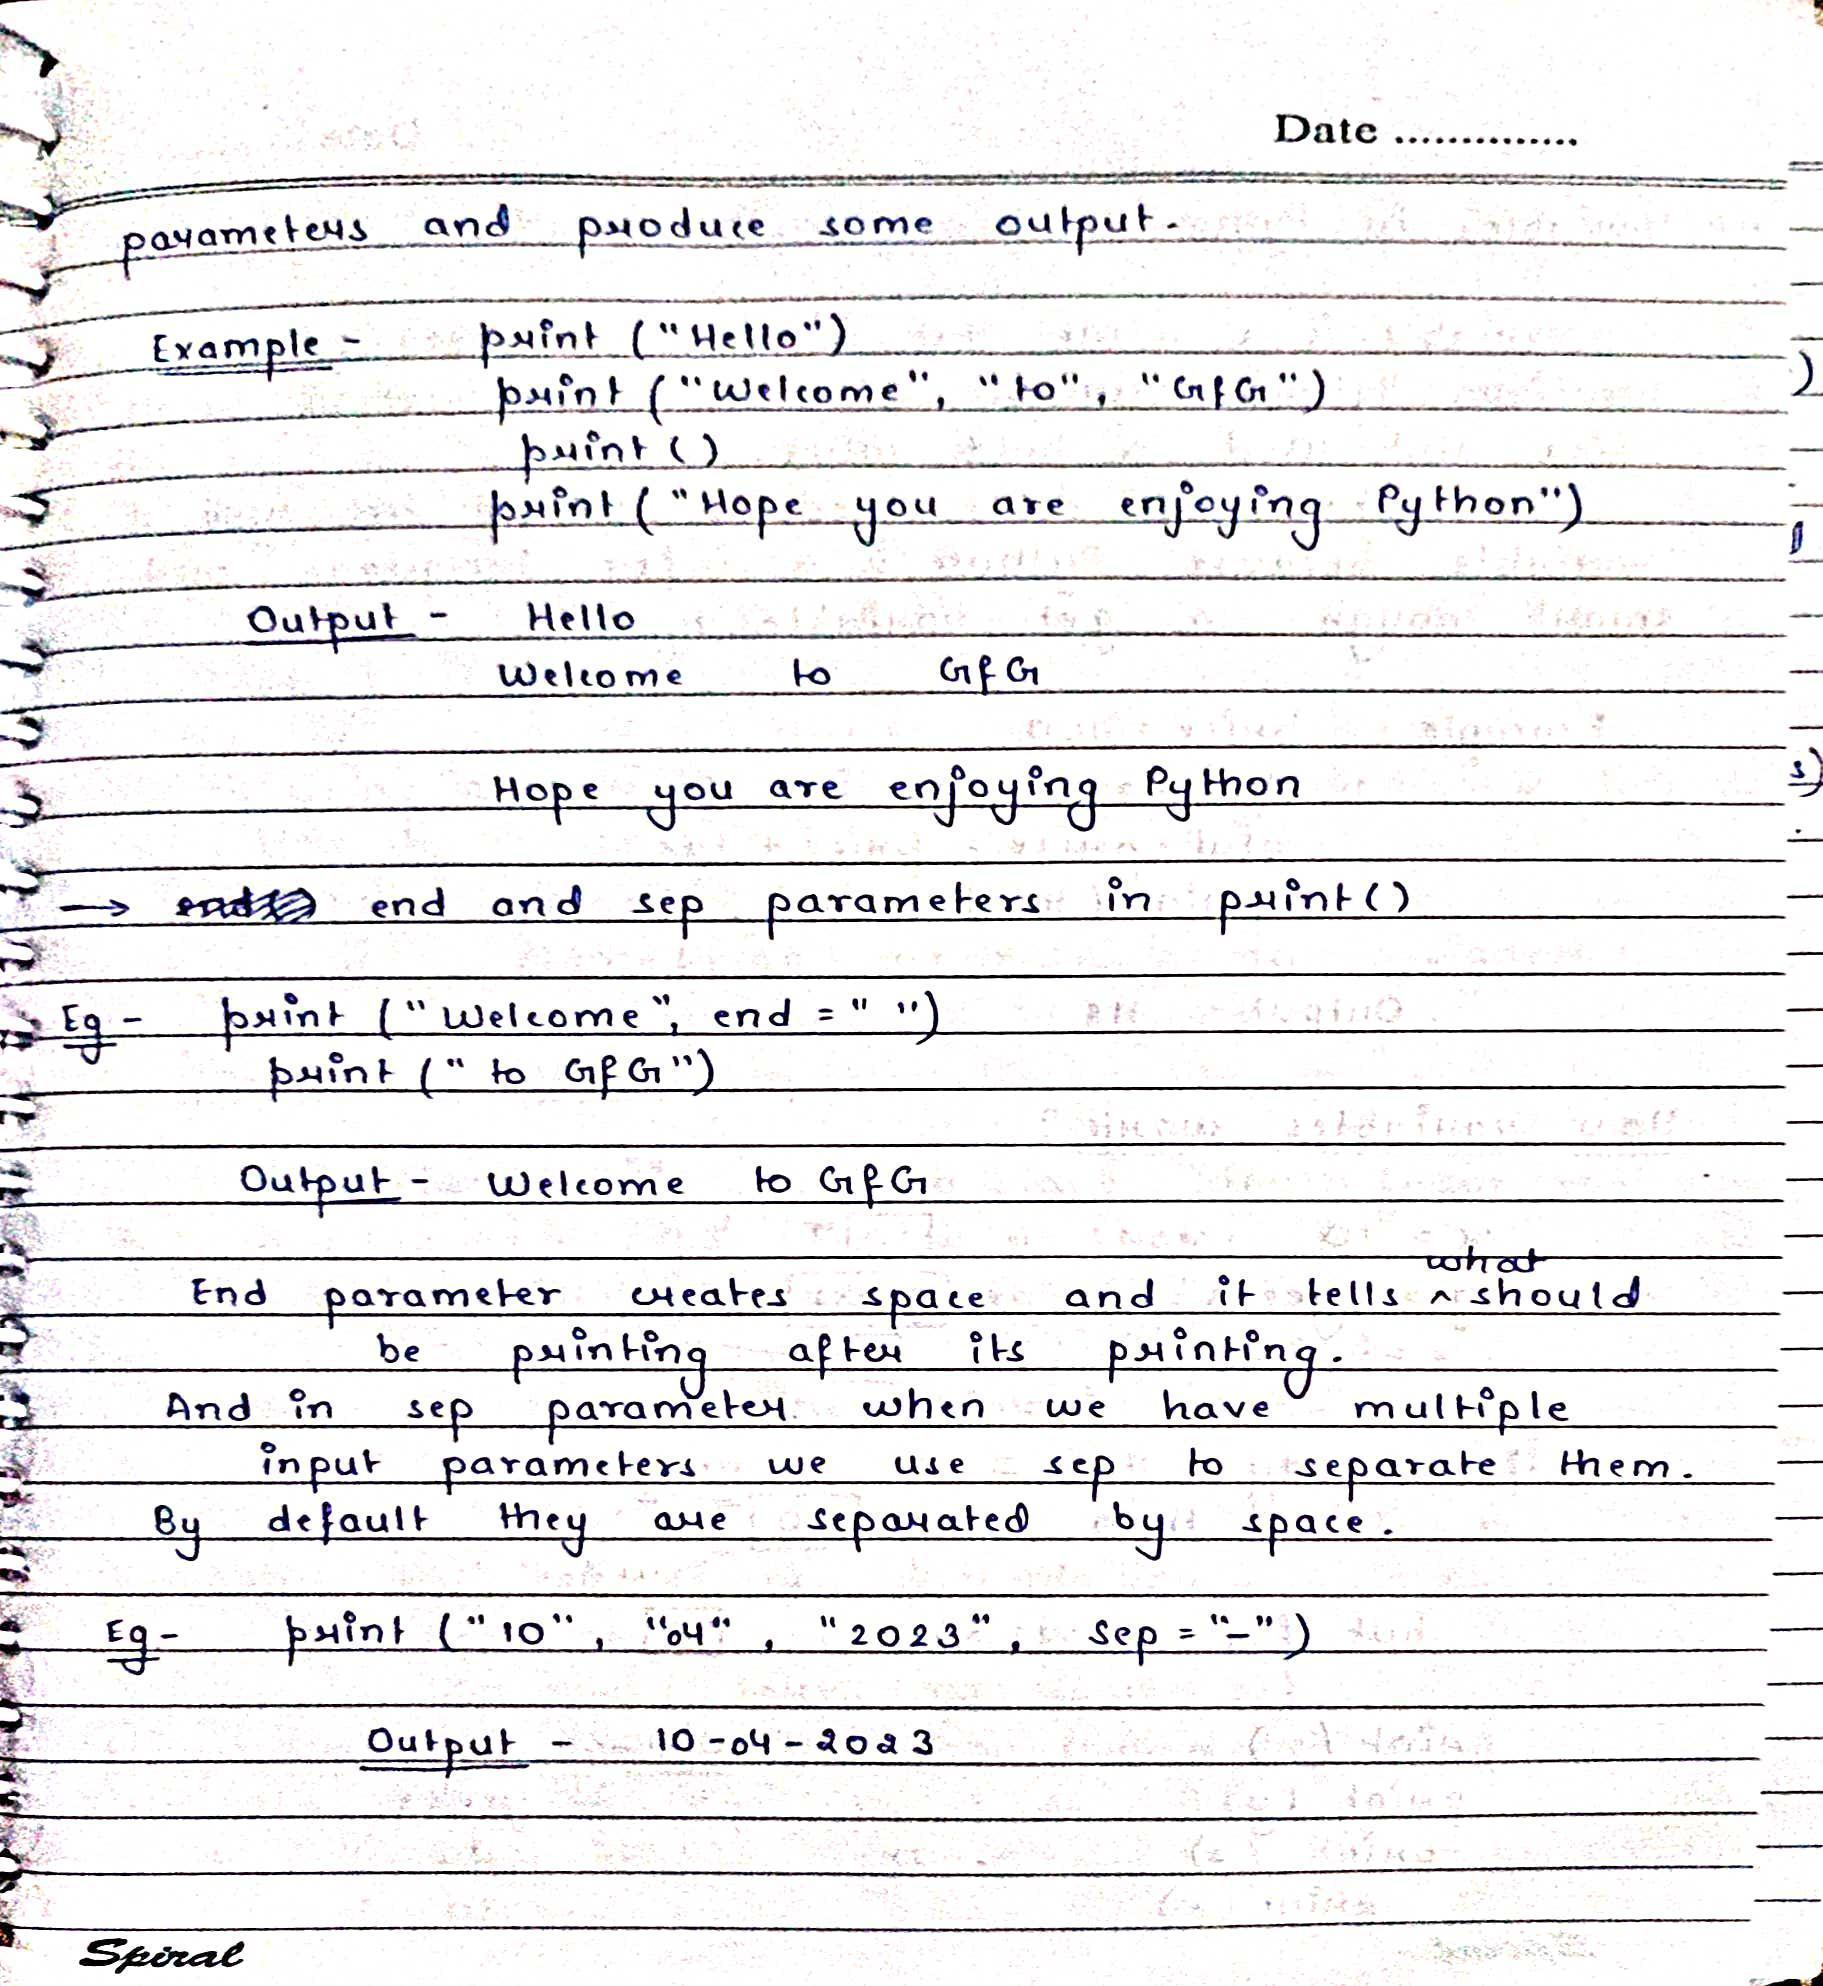 Date ..............
parameters and produce some output.
Example - print ("Hello")
print ("Welcome", "to", "GfG")
print ()
print ("Hope you are enjoying Python")
Output - Hello
Welcome to GfG
Hope you are enjoying Python
→ end and sep parameters in print()
Eg - print ("Welcome", end = " ")
print (" to GfG")
Output - Welcome to GfG
End parameter creates space and it tells what should
be printing after its printing.
And in sep parameter when we have multiple
input parameters we use sep to separate them.
By default they are separated by space.
Eg - print ("10", "04", "2023", sep = "-")
Output - 10-04-2023
Spiral